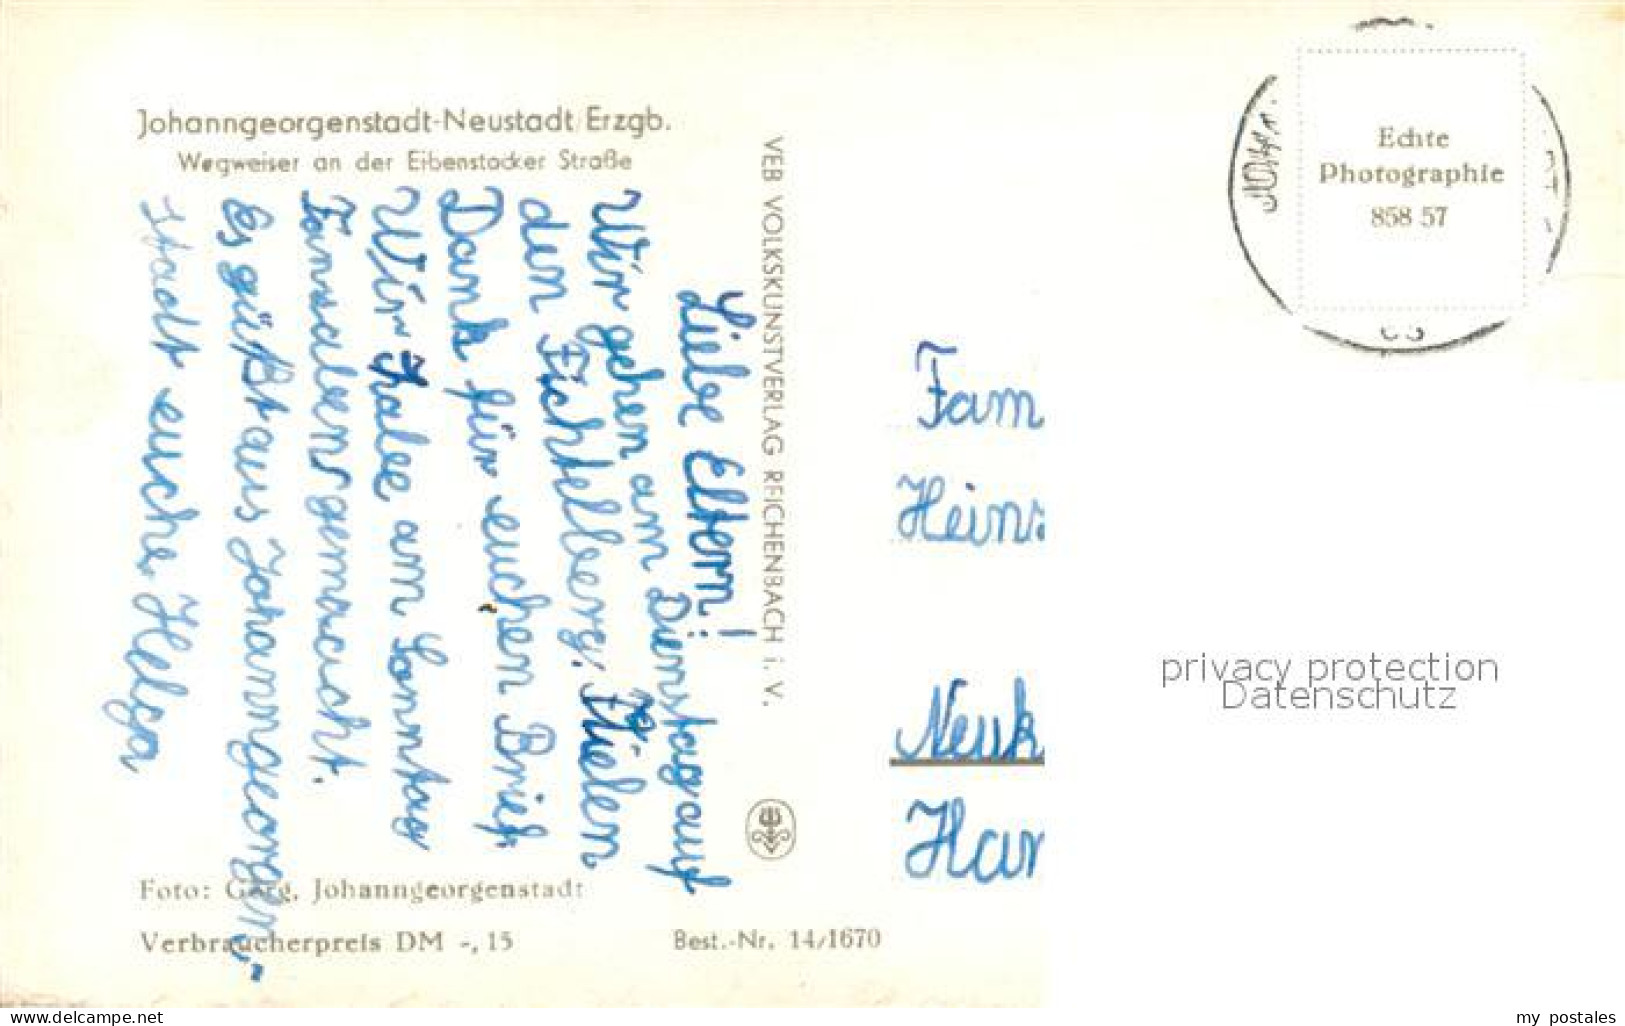 Johanngeorgenstadt-Neustadt/Erzgb.
Wegweiser an der Eibenstocker Straße
Liebe Eltern!
Wir gehen am Dienstag auf
den Fichtelberg. Vielen
Dank für euchen Brief.
Wir am Sonntag
gemacht.
Es grüßt aus Johanngeorgen-
stadt euche Helga
Foto: Georg, Johanngeorgenstadt
Verbraucherpreis DM -,15
Best.-Nr. 14/1670
VEB VOLKSKUNSTVERLAG REICHENBACH i. V.
Echte
Photographie
858 57
Fam
Heins
Neuk
Har
privacy protection
Datenschutz
www.delcampe.net
my_postales